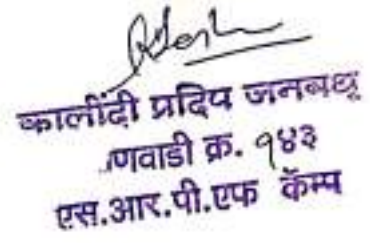 कालींदी प्रदिप जनबधू
णवाडी क्र. १४३
एस.आर.पी.एफ कॅम्प